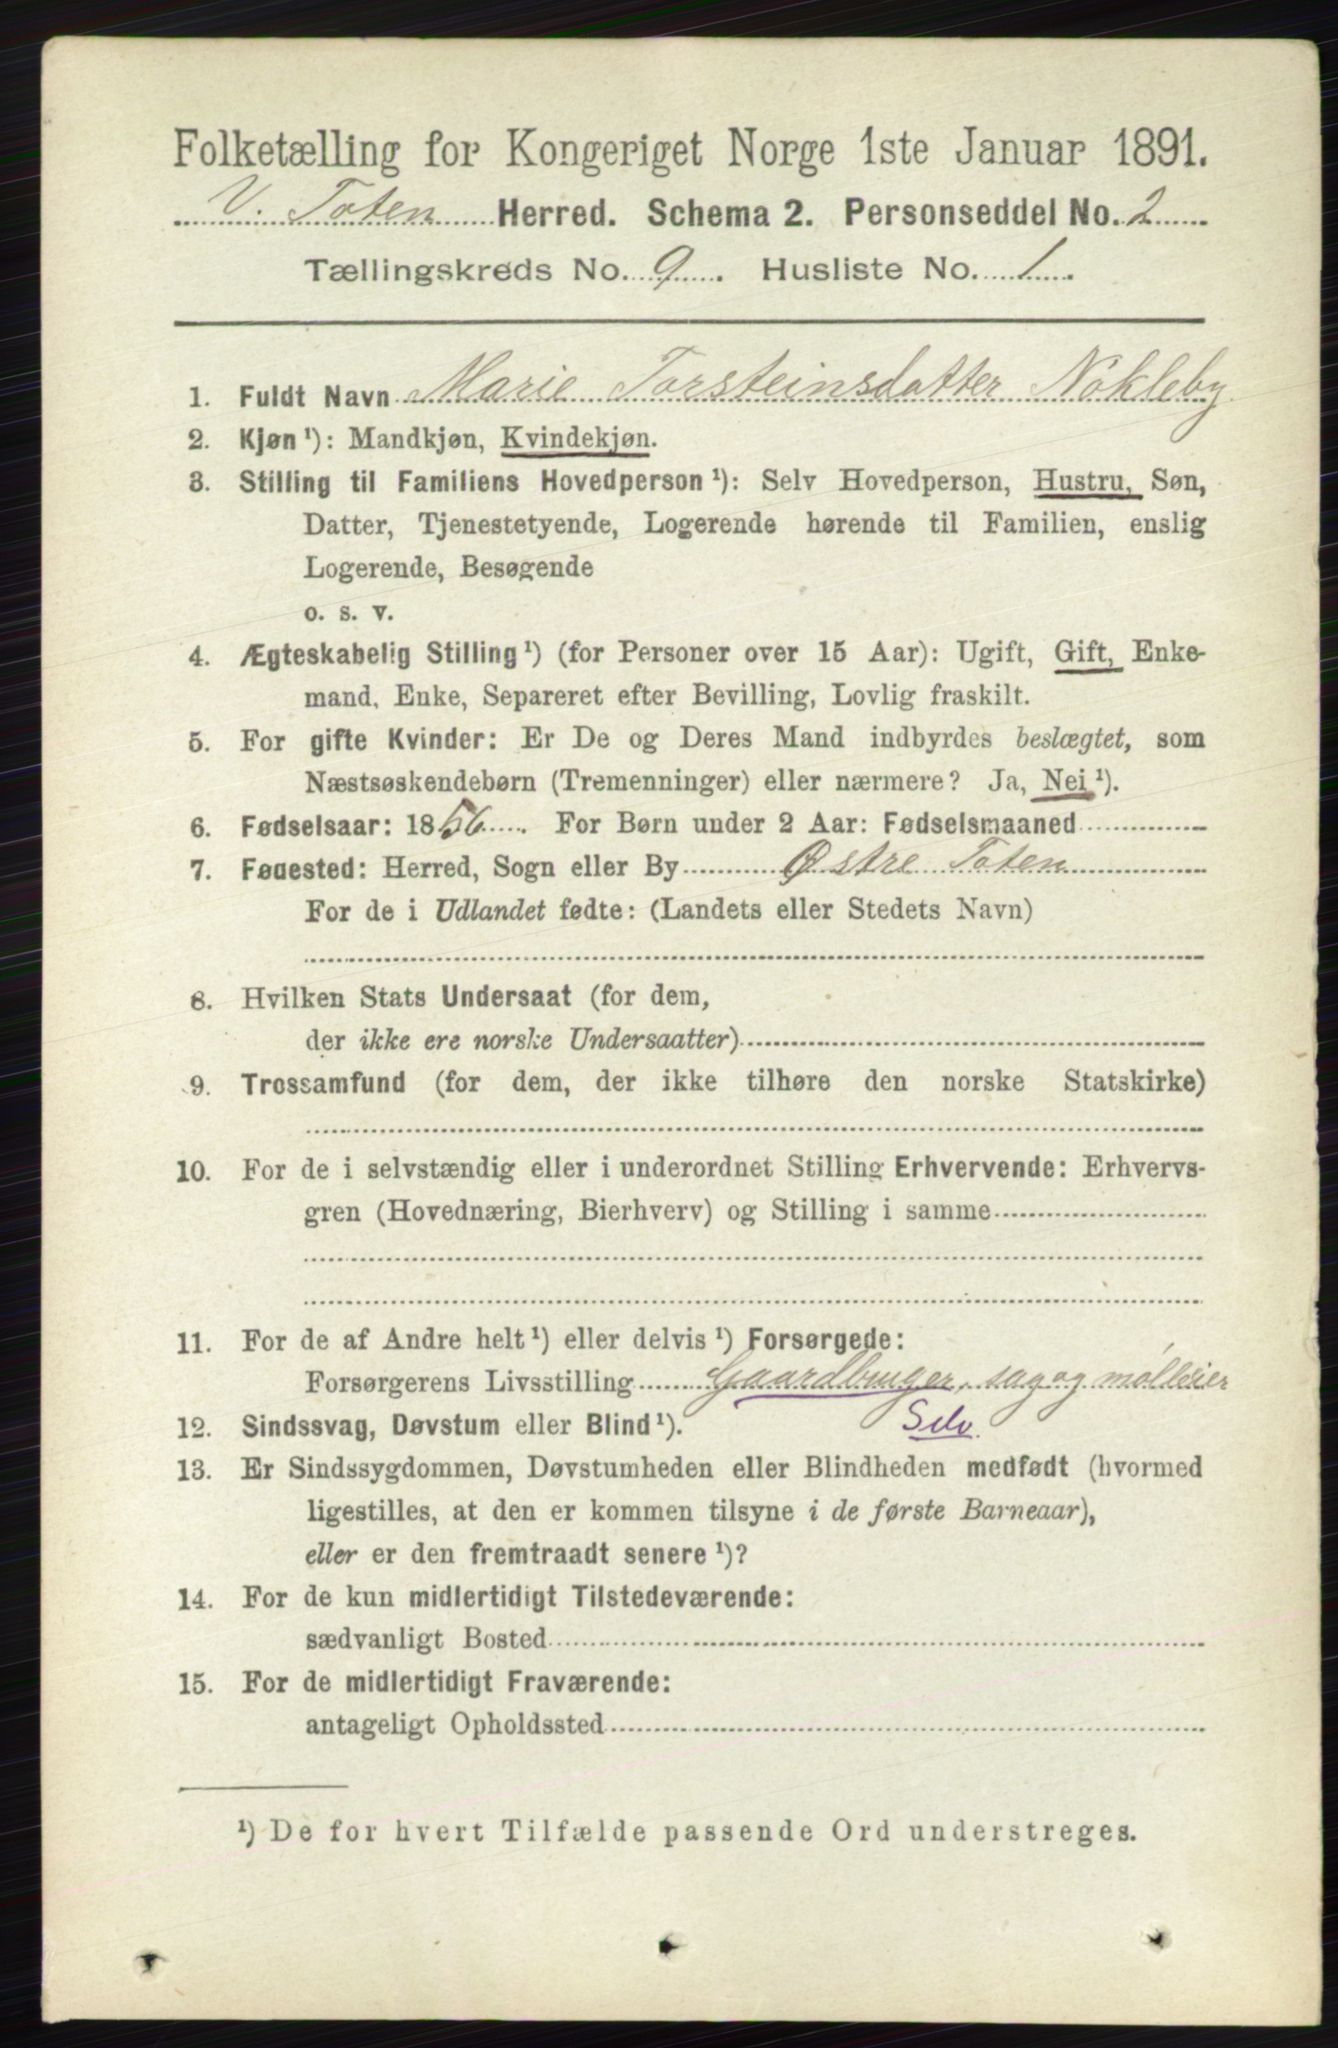 Folketælling for Kongeriget Norge 1ste Januar 1891.
V. Toten Herred. Schema 2. Personseddel No. 2
Tællingskreds No. 9. Husliste No. 1.
1. Fuldt Navn Marie Torsteinsdatter Nökleby
2. Kjøn ¹): Mandkjøn, Kvindekjøn.
3. Stilling til Familiens Hovedperson ¹): Selv Hovedperson, Hustru, Søn,
Datter, Tjenestetyende, Logerende hørende til Familien, enslig
Logerende, Besøgende
o. s. v.
4. Ægteskabelig Stilling ¹) (for Personer over 15 Aar): Ugift, Gift, Enke-
mand, Enke, Separeret efter Bevilling, Lovlig fraskilt.
5. For gifte Kvinder: Er De og Deres Mand indbyrdes beslægtet, som
Næstsøskendebørn (Tremenninger) eller nærmere? Ja, Nei ¹).
6. Fødselsaar: 1856. For Børn under 2 Aar: Fødselsmaaned
7. Fødested: Herred, Sogn eller By Østre Toten
For de i Udlandet fødte: (Landets eller Stedets Navn)
8. Hvilken Stats Undersaat (for dem,
der ikke ere norske Undersaatter)
9. Trossamfund (for dem, der ikke tilhøre den norske Statskirke)
10. For de i selvstændig eller i underordnet Stilling Erhvervende: Erhvervs-
gren (Hovednæring, Bierhverv) og Stilling i samme
11. For de af Andre helt ¹) eller delvis ¹) Forsørgede:
Forsørgerens Livsstilling Gaardbruger, sag og mølleier
12. Sindssvag, Døvstum eller Blind ¹). Selv
13. Er Sindssygdommen, Døvstumheden eller Blindheden medfødt (hvormed
ligestilles, at den er kommen tilsyne i de første Barneaar),
eller er den fremtraadt senere ¹)?
14. For de kun midlertidigt Tilstedeværende:
sædvanligt Bosted
15. For de midlertidigt Fraværende:
antageligt Opholdssted
¹) De for hvert Tilfælde passende Ord understreges.